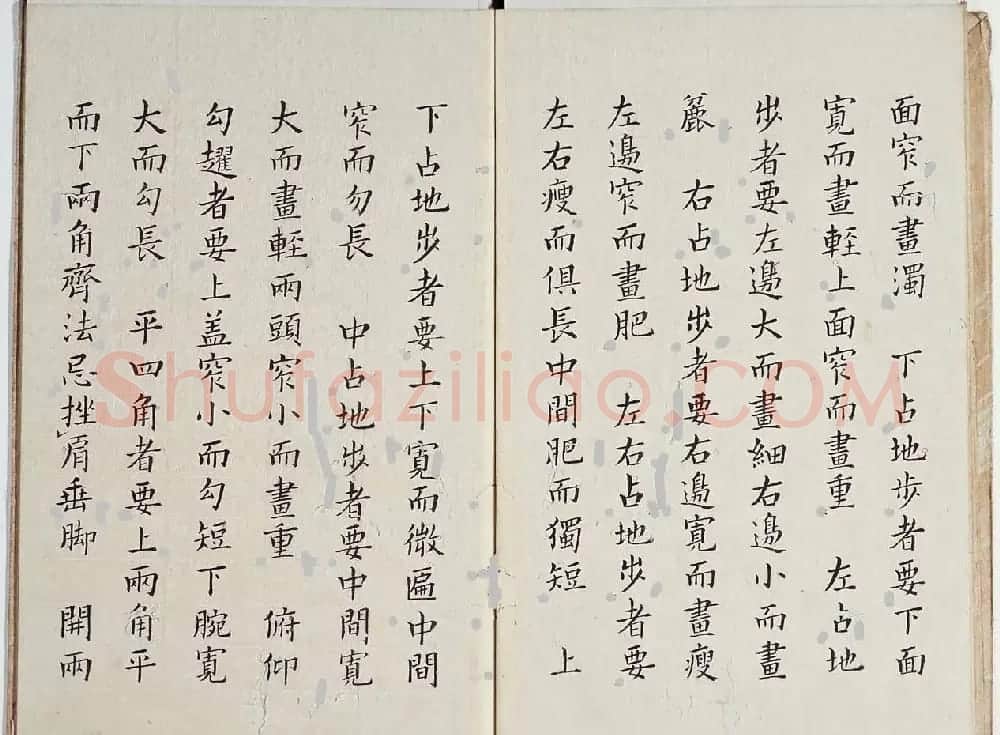 面窄而畫濁　下占地步者要下面
寛而畫輕上面窄而畫重　左占地
步者要左邊大而畫細右邊小而畫
麄　右占地步者要右邊寛而畫瘦
左邊窄而畫肥　左右占地步者要
左右瘦而俱長中間肥而獨短　上
下占地步者要上下寛而微匾中間
窄而勿長　中占地步者要中間寛
大而畫輕兩頭窄小而畫重　俯仰
勾趯者要上盖窄小而勾短下腕寛
大而勾長　平四角者要上兩角平
而下兩角齊法忌挫肩垂脚　開兩
Shufaziliao.COM